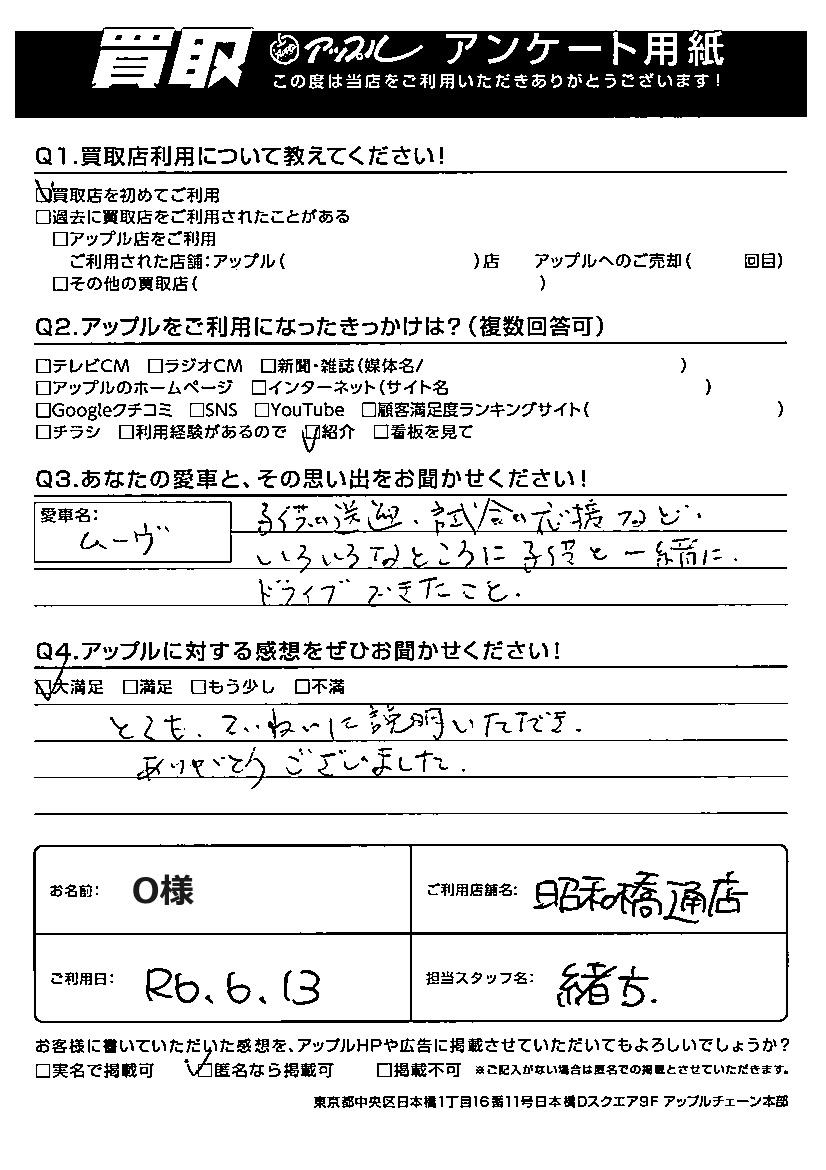 買取 アップル アンケート用紙
この度は当店をご利用いただきありがとうございます！
Q1.買取店利用について教えてください！
☑買取店を初めてご利用
□過去に買取店をご利用されたことがある
□アップル店をご利用
ご利用された店舗：アップル（　　　）店　アップルへのご売却（　　　回目）
□その他の買取店（　　　）
Q2.アップルをご利用になったきっかけは？（複数回答可）
□テレビCM □ラジオCM □新聞・雑誌（媒体名/　　　）
□アップルのホームページ □インターネット（サイト名　　　）
□Googleクチコミ □SNS □YouTube □顧客満足度ランキングサイト（　　　）
□チラシ □利用経験があるので ☑紹介 □看板を見て
Q3.あなたの愛車と、その思い出をお聞かせください！
愛車名：
ムーヴ
子供の送迎、試合の応援など、
いろいろなところに子供と一緒に、
ドライブできたこと。
Q4.アップルに対する感想をぜひお聞かせください！
☑大満足 □満足 □もう少し □不満
とても、ていねいに説明いただき、
ありがとうございました。
お名前： O様
ご利用店舗名： 昭和橋通店
ご利用日： R6.6.13
担当スタッフ名： 緒方.
お客様に書いていただいた感想を、アップルHPや広告に掲載させていただいてもよろしいでしょうか？
□実名で掲載可 ☑匿名なら掲載可 □掲載不可 ※ご記入がない場合は匿名での掲載とさせていただきます。
東京都中央区日本橋1丁目16番11号日本橋Dスクエア9F アップルチェーン本部